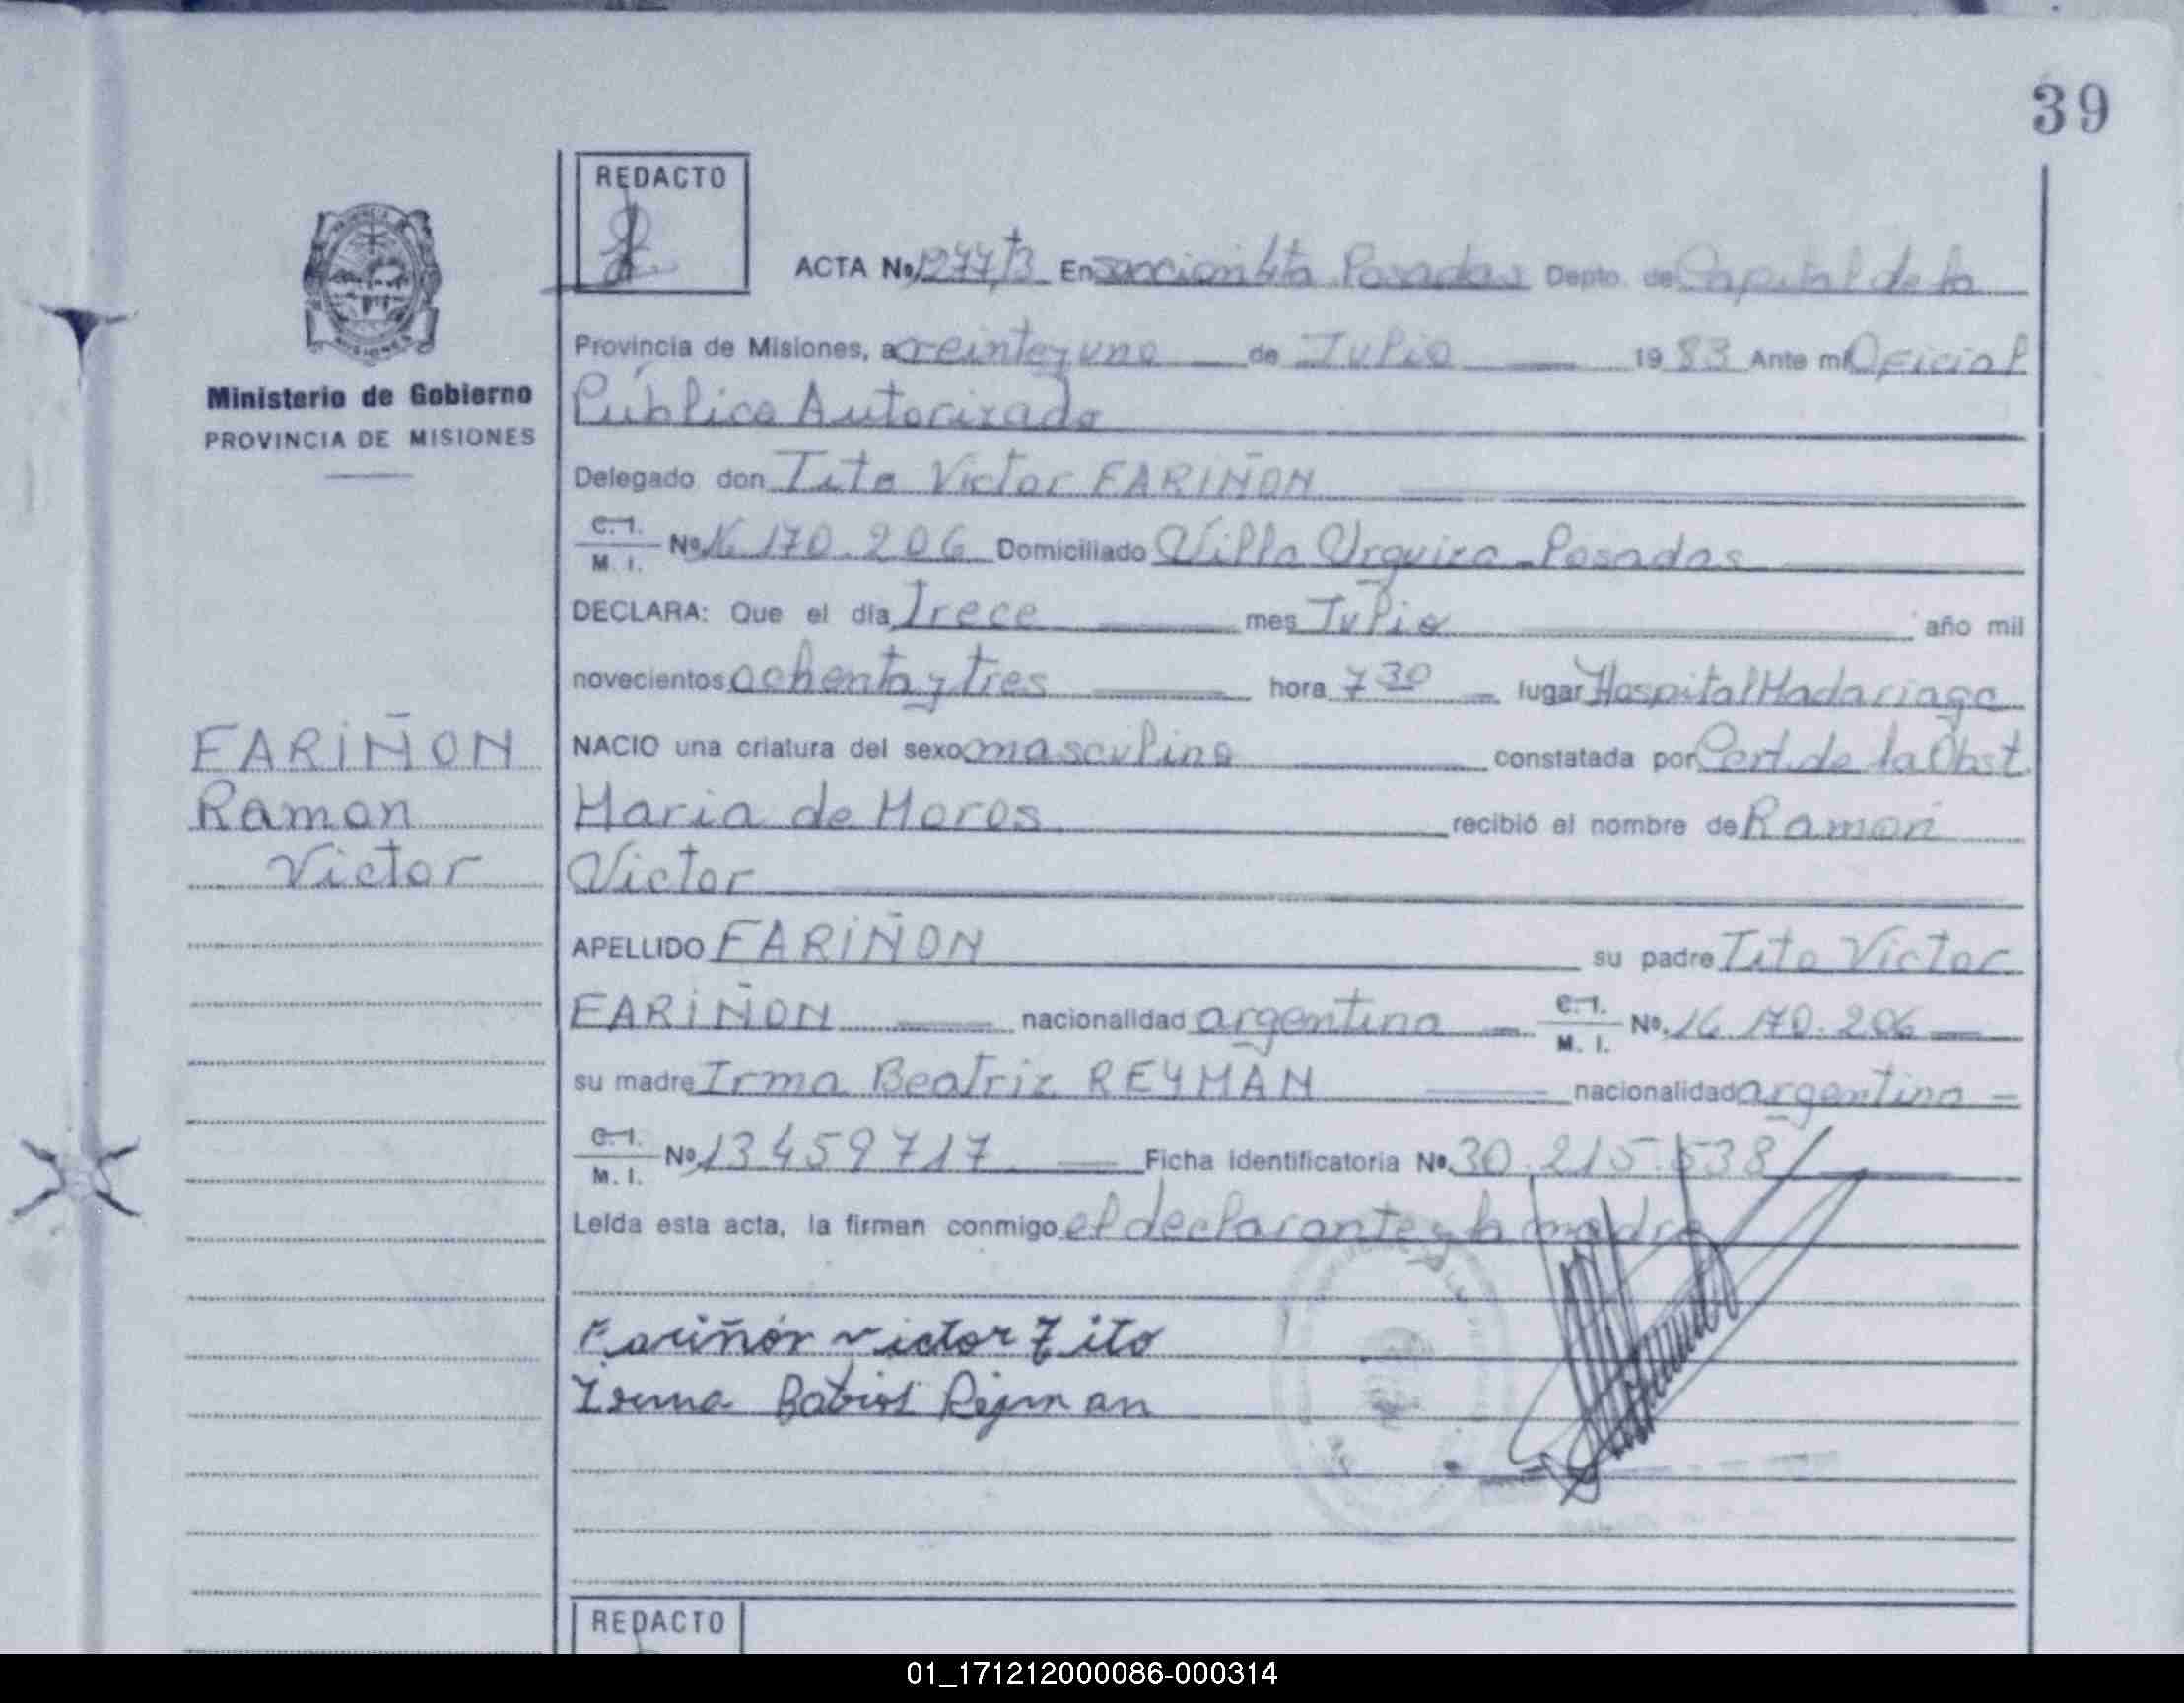 39
REDACTO
ACTA No 1277 T3 En seccion 4ta Posadas Depto. de Capital de la
Provincia de Misiones, a treinta y uno de Julio 1983 Ante mi Oficial
Ministerio de Gobierno
PROVINCIA DE MISIONES
Público Autorizado
Delegado don Tito Victor FARIÑON
C.I. M. I. Nº 16.170.206 Domiciliado Villa Urquiza - Posadas
DECLARA: Que el día Trece mes Julio año mil
novecientos ochenta y tres hora 7 30 lugar Hospital Madariaga
NACIO una criatura del sexo masculino constatada por Cert. de la Obst.
FARIÑON
Ramon
Victor
Maria de Moros recibió el nombre de Ramon
Victor
APELLIDO FARIÑON su padre Tito Victor
FARIÑON nacionalidad argentina C.I. M. I. Nº. 16.170.206
su madre Irma Beatriz REYMAN nacionalidad argentina
C.I. M. I. Nº 13459717 Ficha Identificatoria Nº 30.215.538/
Leída esta acta, la firman conmigo el declarante y la madre
Fariñon victor Tito
Irma Batris Rejman
REDACTO
01_171212000086-000314